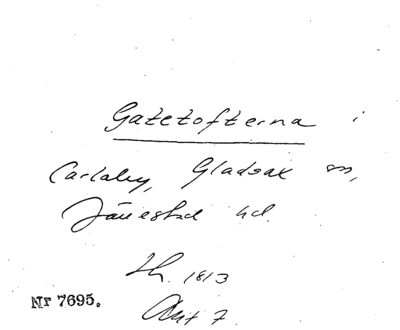 Gatetofterna i
Carlaby, Gladsax sn,
Järrestad hd.
Lh. 1813
Akt 7
Nr 7695.